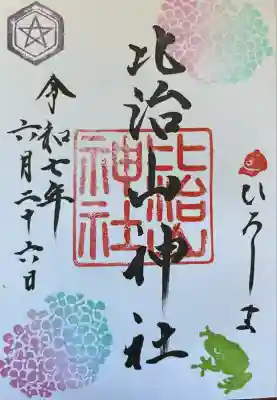 比治山神社
比治山
神社
ひろしま
令和七年
六月二十六日